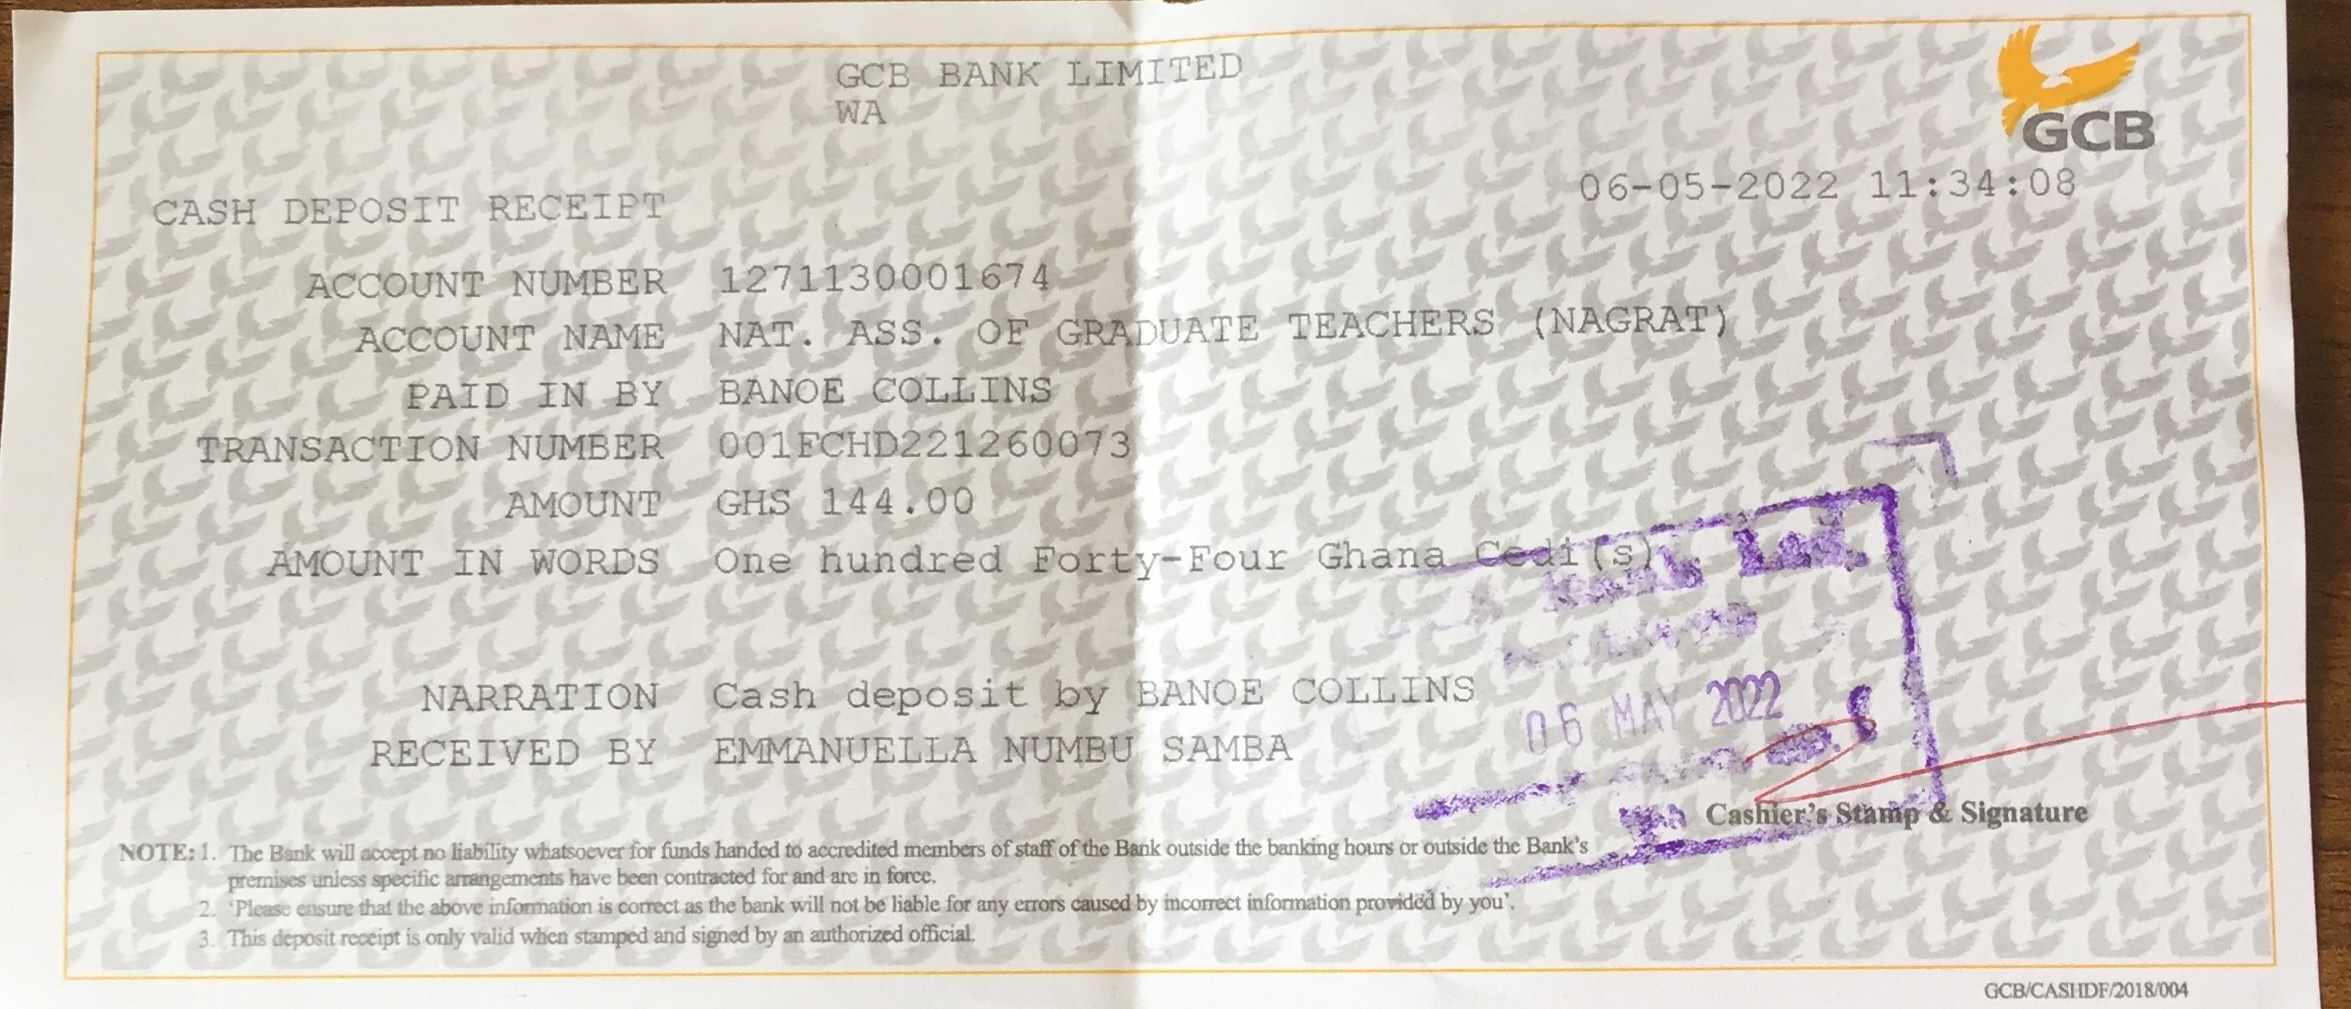 GCB BANK LIMITED
WA
GCB
06-05-2022 11:34:08
CASH DEPOSIT RECEIPT
ACCOUNT NUMBER 1271130001674
ACCOUNT NAME NAT. ASS. OF GRADUATE TEACHERS (NAGRAT)
PAID IN BY BANOE COLLINS
TRANSACTION NUMBER 001FCHD221260073
AMOUNT GHS 144.00
AMOUNT IN WORDS One hundred Forty-Four Ghana Cedi(s)
NARRATION Cash deposit by BANOE COLLINS
06 MAY 2022
RECEIVED BY EMMANUELLA NUMBU SAMBA
Cashier's Stamp & Signature
NOTE: 1. The Bank will accept no liability whatsoever for funds handed to accredited members of staff of the Bank outside the banking hours or outside the Bank's
premises unless specific arrangements have been contracted for and are in force.
2. 'Please ensure that the above information is correct as the bank will not be liable for any errors caused by incorrect information provided by you'.
3. This deposit receipt is only valid when stamped and signed by an authorized official.
GCB/CASHDF/2018/004